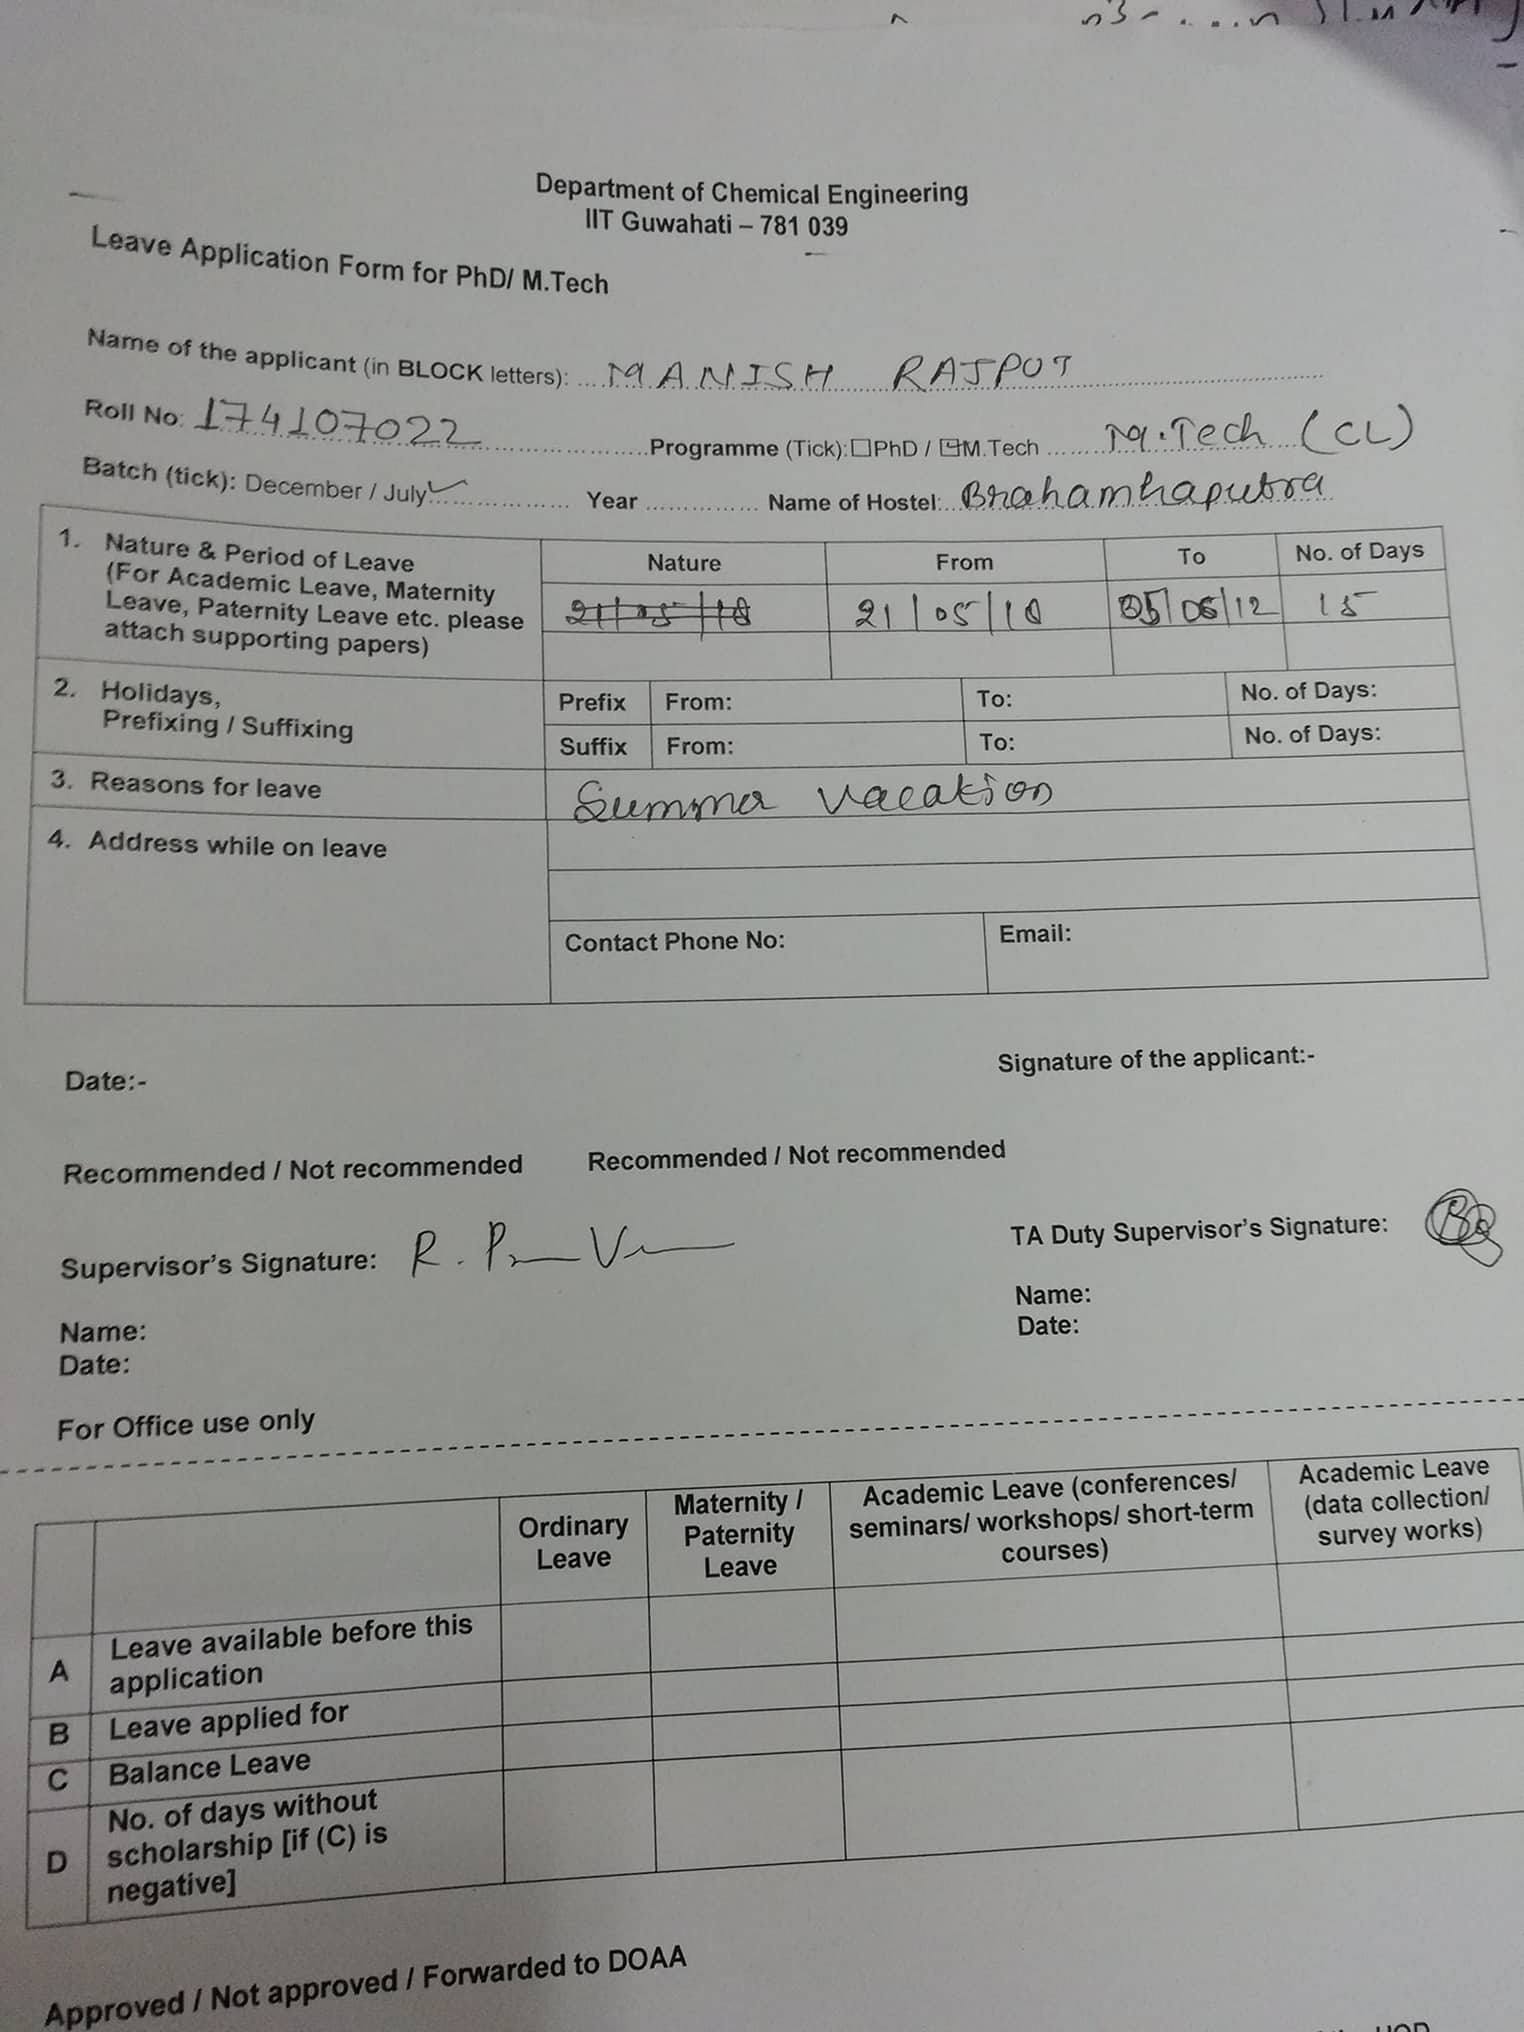 Department of Chemical Engineering
IIT Guwahati – 781 039
Leave Application Form for PhD/ M.Tech
Name of the applicant (in BLOCK letters): MANISH RAJPUT
Roll No: 174107022 Programme (Tick): ☐PhD / ☑M.Tech M.Tech (CL)
Batch (tick): December / July ✓ Year .............. Name of Hostel: Brahamhaputra
1. Nature & Period of Leave Nature From To No. of Days
(For Academic Leave, Maternity
Leave, Paternity Leave etc. please 21/05/18 21/05/18 05/06/12 15
attach supporting papers)
2. Holidays, Prefix From: To: No. of Days:
Prefixing / Suffixing Suffix From: To: No. of Days:
3. Reasons for leave Summer vacation
4. Address while on leave
Contact Phone No: Email:
Date:- Signature of the applicant:-
Recommended / Not recommended Recommended / Not recommended
Supervisor's Signature: TA Duty Supervisor's Signature:
Name: Name:
Date: Date:
For Office use only
Ordinary Leave Maternity / Paternity Leave Academic Leave (conferences/ seminars/ workshops/ short-term courses) Academic Leave (data collection/ survey works)
A Leave available before this application
B Leave applied for
C Balance Leave
D No. of days without scholarship [if (C) is negative]
Approved / Not approved / Forwarded to DOAA
HOD